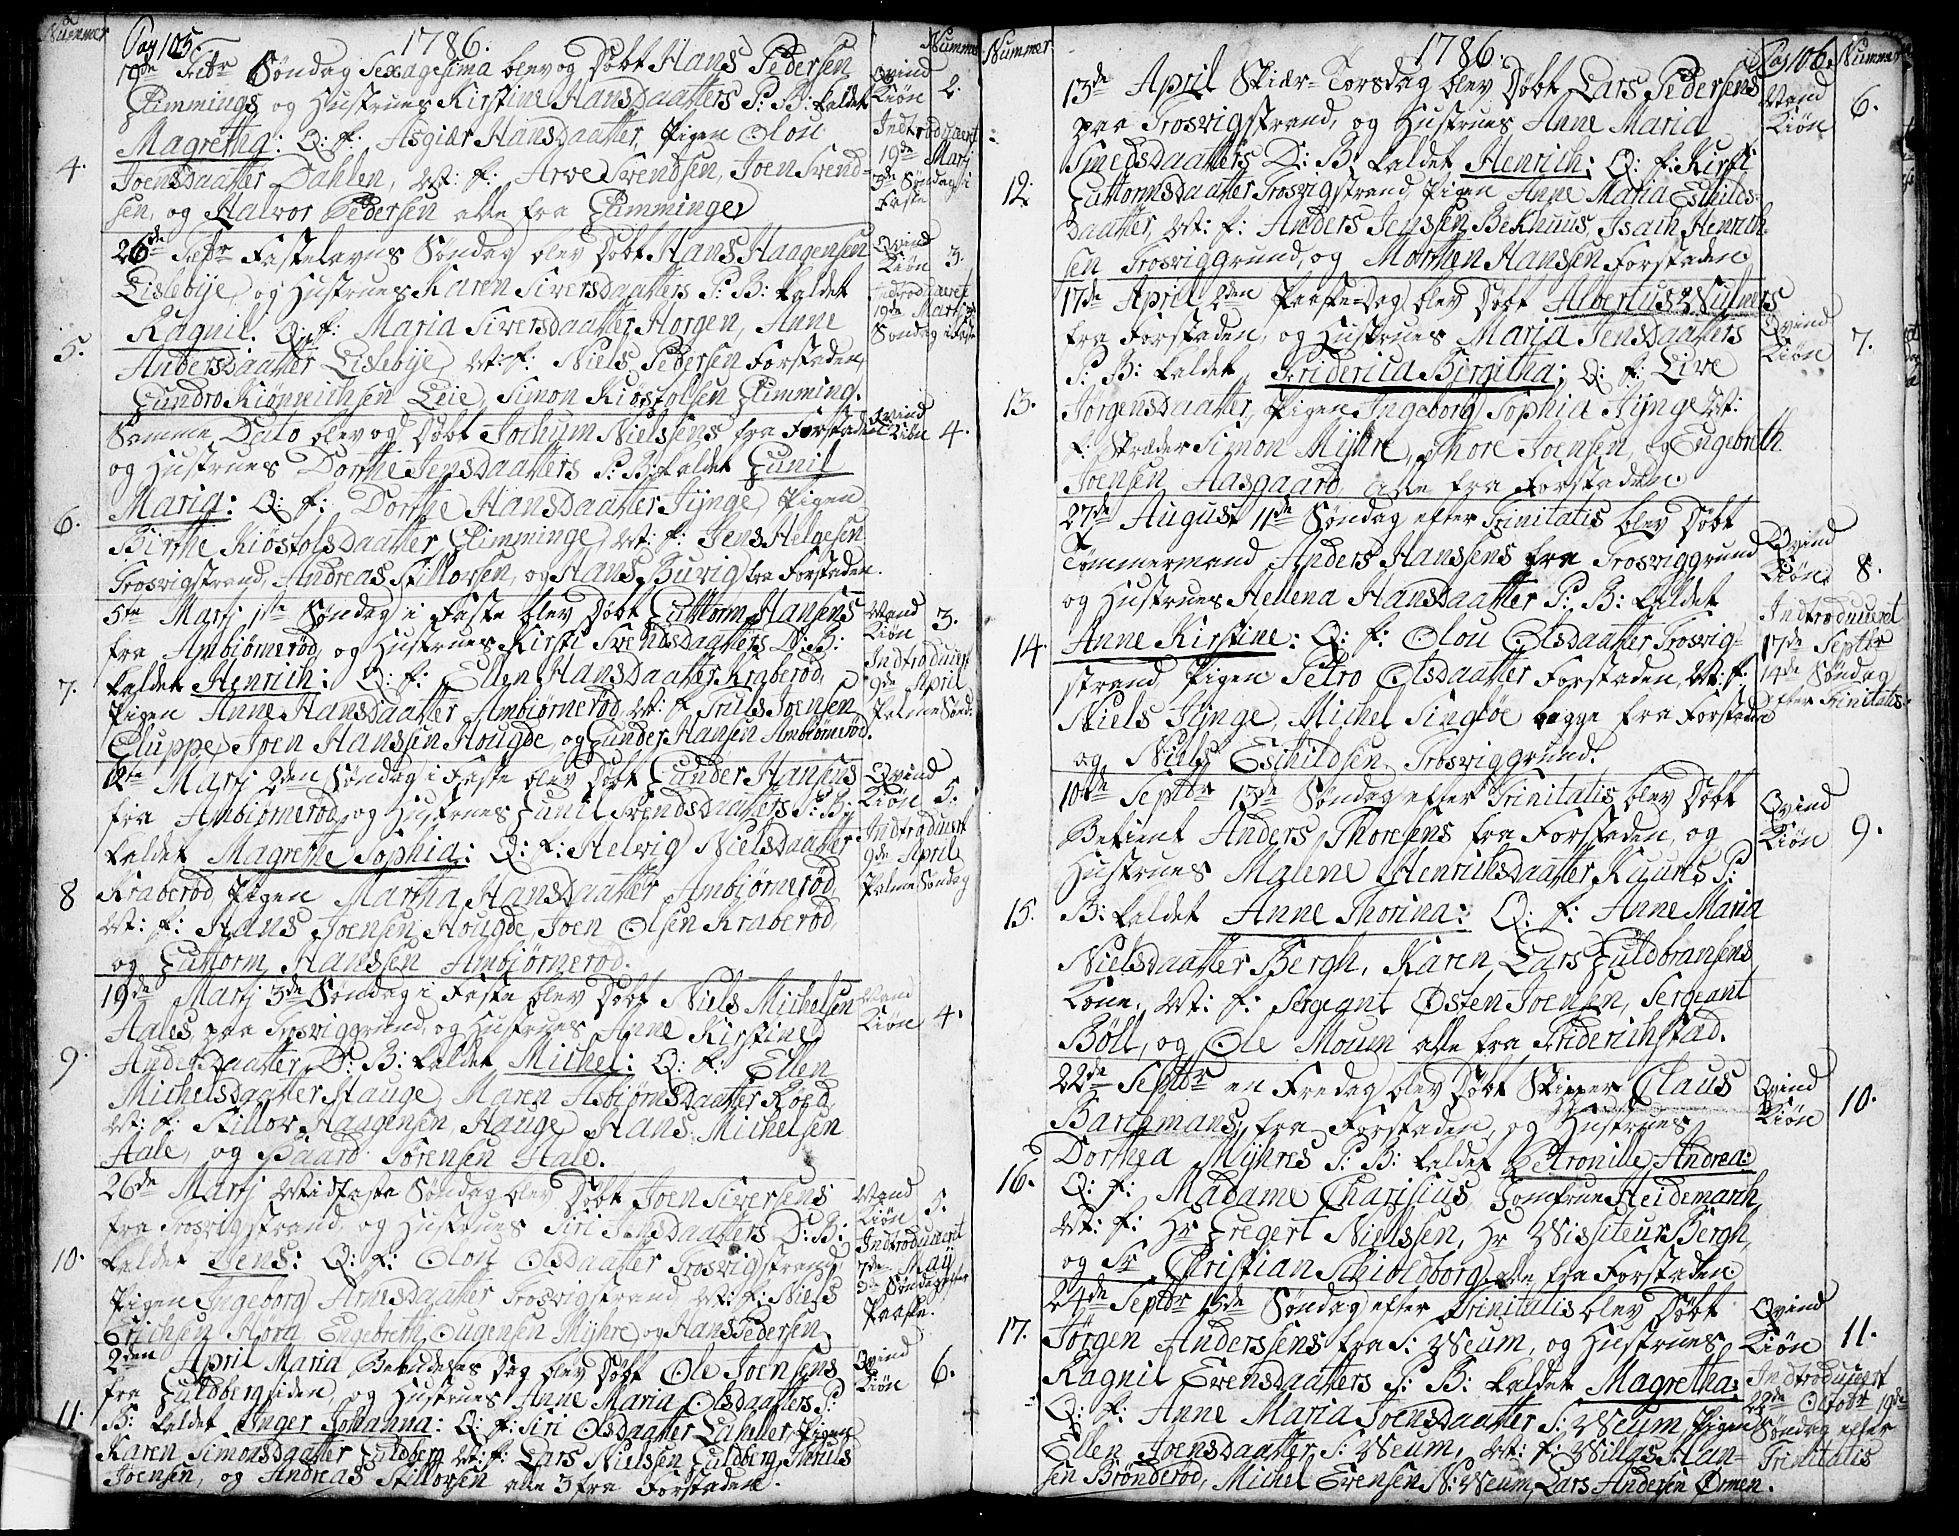 Nummer
Pag 105.
1786.
Nummer
19de Febr Søndag Sexagesima blev og Døbt Hans Pedersen
Glimmings og Hustrues Kirstine Hansdaatters P: B: kaldet
Magretha: Q: f: Asgiær Hansdaatter, Pigen Olou
4.
Joensdaatter Dahlen, M: f: Arve Svendsen, Joen Svend-
sen, og Halvor Pedersen alle fra Glimminge
Qvind
Kiøn
2.
Introduceret
19de Martj
3de Søndag i
Faste
26de Febr Fastelavns Søndag blev Døbt Hans Haagensen
Lislebÿe, og Hustrues Karen Siversdaatters P: B: kaldet
Ragnil. Q: f: Maria Siversdaatter Horgen, Anne
5.
Andersdaatter Lislebÿe, M: f: Niels Pedersen Forstaden,
Gundro Kiønnichsen Leie, Simon Kiøstolsen Glimming.
Qvind
Kiøn
3.
Introduceret
19de Martj 3de
Søndag i Faste
Samme Dato blev og Døbt Jochum Nielsens fra Forstaden
og Hustrues Dorthe Jensdaatters P: B: kaldet Gunil
Maria: Q: f: Dorthe Hansdaatter Jÿnge, Pigen
6.
Birthe Kiøstolsdaatter Glimminge, M: f: Jens Helgesen
Trosvigstrand, Andreas Stillorsen, og Hans Buvig fra Forstaden.
Qvind
Kiøn
4.
5te Martj 1ste Søndag i Faste blev Døbt Guttorm Hansens
fra Ambiørnerød, og Hustrues Kirsti Svendsdaatters D: B:
kaldet Henrich: Q: f: Ellen Hansdaatter Kraberød,
7.
Pigen Anne Hansdaatter Ambiørnerød, M: f: Truls Joensen
Gluppe, Joen Hanssen Hougde, og Gunder Hansen Ambiørnerød.
Mand
Kiøn
3.
Introducert
9de April
Palme Sønd:
12te Martj 2den Søndag i Faste blev Døbt Gunder Hansens
fra Ambiørnerød, og Hustrues Gunil Svendsdaatters P: B:
kaldet Magrethe Sophia: Q: f: Helvig Nielsdaatter
8
Kraberød, Pigen Martha Hansdaatter Ambiørnerød,
M: f: Hans Joensen Hougde, Joen Olsen Kraberød,
og Guttorm Hanssen Ambiørnerød.
Qvind
Kiøn
5.
Introducert
9de April
Palme Søndag
19de Martj 3de Søndag i Faste blev Døbt Niels Michelsen
Aales paa Trosviggrund, og Hustrues Anne Kirstine
9.
Andersdaatter D: B: kaldet Michel: Q: f: Ellen
Michelsdaatter Hauge, Maren Asbiørnsdaatter Røed,
M: f: Stillor Haagensen Hauge, Hans Michelsen
Aale, og Baard Sørensen Aale.
Mand
Kiøn
4.
26de Martj Midfaste Søndag blev Døbt Joen Siversens
fra Trosvigstrand, og Hustrues Siri Jensdaatters D: B:
10.
kaldet Jens: Q: f: Olou Olsdaatter Trosvigstrand,
Pigen Ingeborg Arnesdaatter Trosvigstrand, M: f: Niels
Erichsen Hora, Engebreth Ougensen Mÿhre, og Hans Pedersen.
Mand
Kiøn
5.
Introducerit
7de Maÿ
3de Søndag efter
Paaske.
2den April Maria Bebudelses Dag blev Døbt Ole Joensens
fra Guldbergsiden, og Hustrues Anne Maria Olsdaatters P:
11.
B: kaldet Inger Johanna: Q: f: Siri Olsdaatter Laheller, Pigen
Karen Simonsdaatter Guldberg, M: f: Lars Nielssen Guldberg, Thruls
Joensen, og Andreas Stillorsen alle 3 fra Forstaden.
Qvind
Kiøn
6.
Nummer
1786.
Pag 106.
Nummer
13de April Skiær-Torsdag blev Døbt Lars Pedersens
paa Trosvigstrand, og Hustrues Anne Maria
Smedsdaatters D: B: kaldet Henrich: Q: f: Kirsti
12.
Guttormsdaatter Trosvigstrand, Pigen Anne Maria Eschilds-
daatter, M: f: Anders Jenssen Bekhuus, Isach Henrich-
sen Trosviggrund, og Morthen Hanssen Forstaden
Mand
Kiøn
6.
17de April 2den Paaske-Dag blev Døbt Albertus Wulners
fra Forstaden, og Hustrues Maria Jensdaatters
P: B: kaldet Friderica Birgitha: Q: f: Live
13.
Jørgensdaatter, Pigen Ingeborg Sophia Jÿnge M:
f: Skræder Simon Mÿhre, Thore Joensen, og Engebreth
Joensen Aasgaard alle fra Forstaden.
Qvind
Kiøn
7.
27de August 11de Søndag efter Trinitatis blev Døbt
Tømmermand Anders Hanssens fra Trosviggrund
og Hustrues Hellena Hansdaatter P: B: kaldet
14.
Anne Kirstine: Q: f: Olou Olsdaatter Trosvig-
strand Pigen Petro Olsdaatter Forstaden, M: f:
Niels Jÿnge, Michel Singløe begge fra Forstaden
og Niels Eschildsen Trosviggrund.
Qvind
Kiøn.
8.
Introduceret
17de Septbr
14de Søndag
efter Trinitatis
10de Septbr 13de Søndag efter Trinitatis blev Døbt
Betient Anders Thoresens fra Forstaden, og
Hustrues Malene Henrichsdaatter Kaures P:
15.
B: kaldet Anne Thorina: Q: f: Anne Maria
Nielsdaatter Bergh, Karen Lars Guldbransens
Kone, M: f: Sergeant Østen Joensen, Sergeant
Bøll, og Ole Moum alle fra Friderichstad.
Qvind
Kiøn
9.
22de Septbr en Fredag blev Døbt Skipper Claus
Barchmans, fra Forstaden, og Hustrues
Dorthea Mÿhres P: B: kaldet Petronille Andrea:
16.
Q: f: Madame Charisius, Jomfrue Heidemarch,
M: f: Hr Gregert Nielssen, Hr Wissiteur Bergh,
og Sr Christian Schioldborg, alle fra Forstaden.
Qvind
Kiøn
10.
24de Septbr 15de Søndag efter Trinitatis blev Døbt
17.
Jørgen Anderssens fra S: Weum, og Hustrues
Ragnil Evensdaatters P: B: kaldet Magretha:
Q: f: Anne Maria Joensdaatter S: Weum Pigen
Ellen Joensdaatter S: Weum, M: f: Willas Han-
sen Brønderød, Michel Evensen N: Weum, Lars Andersen Ørmen.
Qvind
Kiøn
11.
Introducert
22de Octobr 19de
Søndag efter
Trinitatis